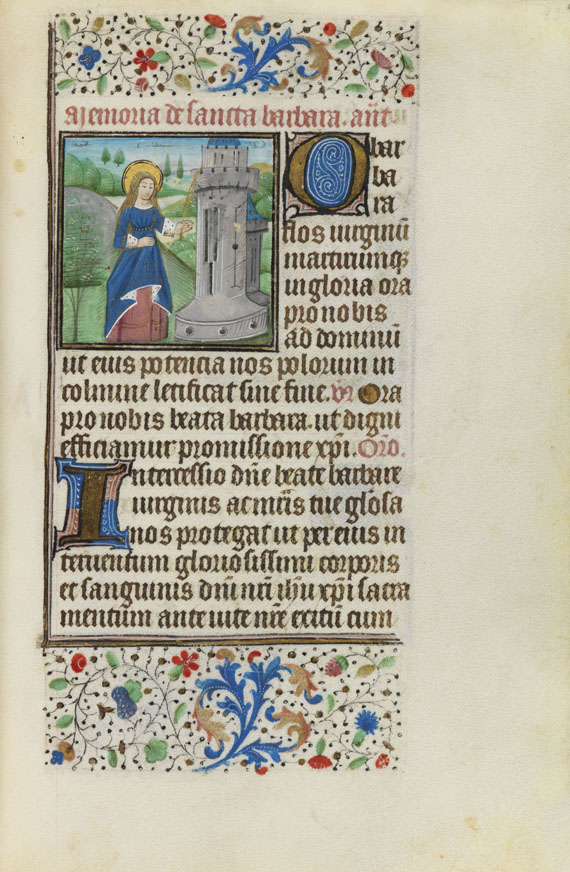 Memoria de sancta barbara. añt
O bar
ba
ra
flos uirginũ
martirumqꝫ
in gloria ora
pro nobis
ad dominũ
ut eius potencia nos polorum in
colmine letificat sine fine. vr̃ Ora
pro nobis beata barbara. ut digni
efficiamur promissione xp̃i. Orõ.
Intercessio dñe beate barbare
uirginis ac mr̃is tue glõsa
nos protegat ut per eius in
teruentum gloriosissimi corporis
et sanguinis dñi nr̃i ihũ xp̃i sacra
mentum ante uite nr̃e exitũ cum